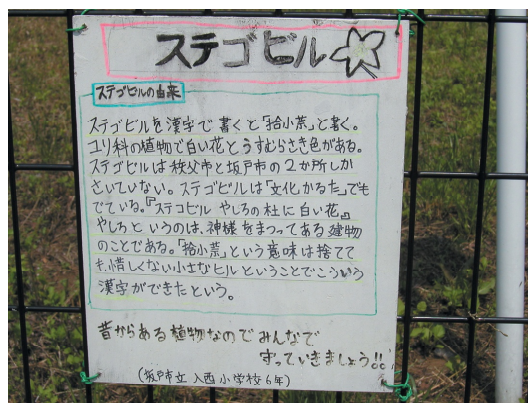 ステゴビル
ステゴビルの由来
ステゴビルを漢字で書くと「拾小蒜」と書く。
ユリ科の植物で白い花とうすむらさき色がある。
ステゴビルは秩父市と坂戸市の2か所しか
さいていない。ステゴビルは「文化かるた」でも
でている。『ステコビル やしろの杜に白い花』
やしろというのは、神様をまつってある建物
のことである。「拾小蒜」という意味は捨てて
も、惜しくない小さなヒルということでこういう
漢字ができたという。
昔からある植物なのでみんなで
守っていきましょう!!
(坂戸市立入西小学校6年)